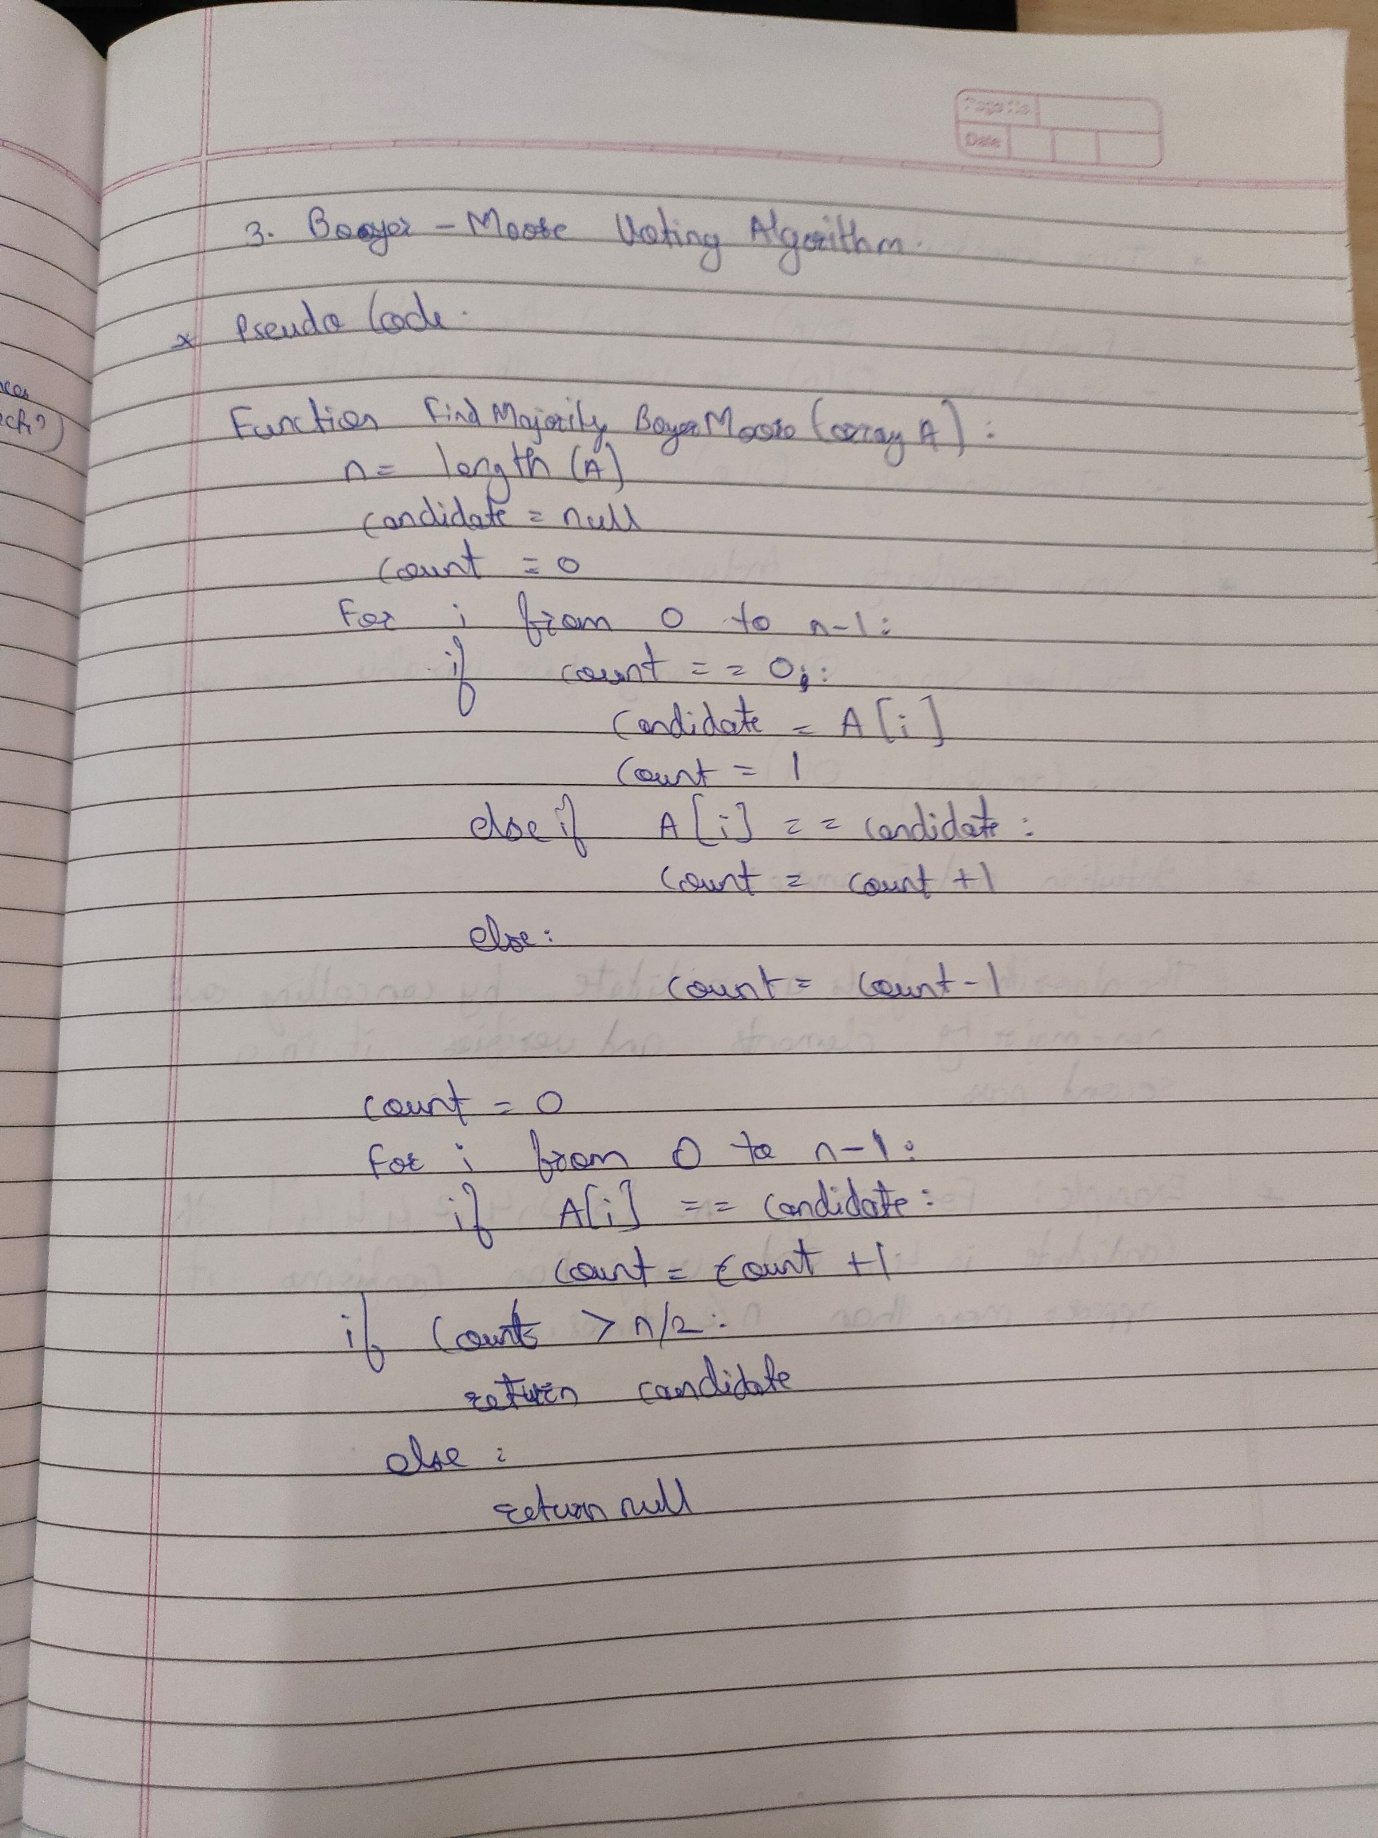 Page No
Date
3. Booyer - Moore Voting Algorithm.
x Pseudo Code.
ch?)
Function Find Majority BoyerMoore (array A) :
n = length (A)
candidate = null
count = 0
For i from 0 to n-1:
if count == 0;:
candidate = A[i]
count = 1
else if A[i] == candidate :
count = count +1
else:
count = count -1
count = 0
for i from 0 to n-1:
if A[i] == candidate:
count = count +1
if counts > n/2:
return candidate
else :
return null